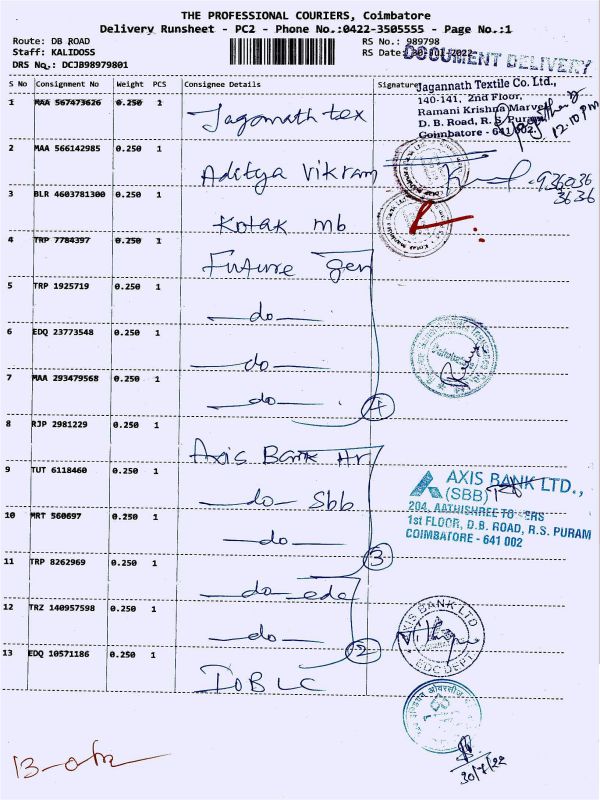 THE PROFESSIONAL COURIERS, Coimbatore
Delivery Runsheet - PC2 - Phone No.:0422-3505555 - Page No.:1
Route: DB ROAD
RS No.: 989798
Staff: KALIDOSS
RS Date: 30-Jul-2022
DRS No.: DCJB98979801
DOCUMENT DELIVERY
S No Consignment No Weight PCS Consignee Details Signature
1 MAA 567473626 0.250 1 Jagannath tex
Jagannath Textile Co. Ltd.,
140-141, 2nd Floor,
Ramani Krishna Marvel
D. B. Road, R. S. Puram
Coimbatore - 641 002.
12.10 pm
2 MAA 566142985 0.250 1 Aditya Vikram
936036
3636
3 BLR 4603781300 0.250 1 Kotak mb
4 TRP 7784397 0.250 1 Future gen
5 TRP 1925719 0.250 1 do
6 EDQ 23773548 0.250 1 do
7 MAA 293479568 0.250 1 do
4
8 RJP 2981229 0.250 1 Axis Bank Hr
9 TUT 6118460 0.250 1 do Sbb
AXIS BANK LTD.,
(SBB)
204, AATHISHREE TOWERS
1st FLOOR, D.B. ROAD, R.S. PURAM
COIMBATORE - 641 002
10 MRT 560697 0.250 1 do
3
11 TRP 8262969 0.250 1 do edc
12 TRZ 140957598 0.250 1 do
2
AXIS BANK LTD
EDC DEPT.
13 EDQ 10571186 0.250 1 IOB LC
30/7/22